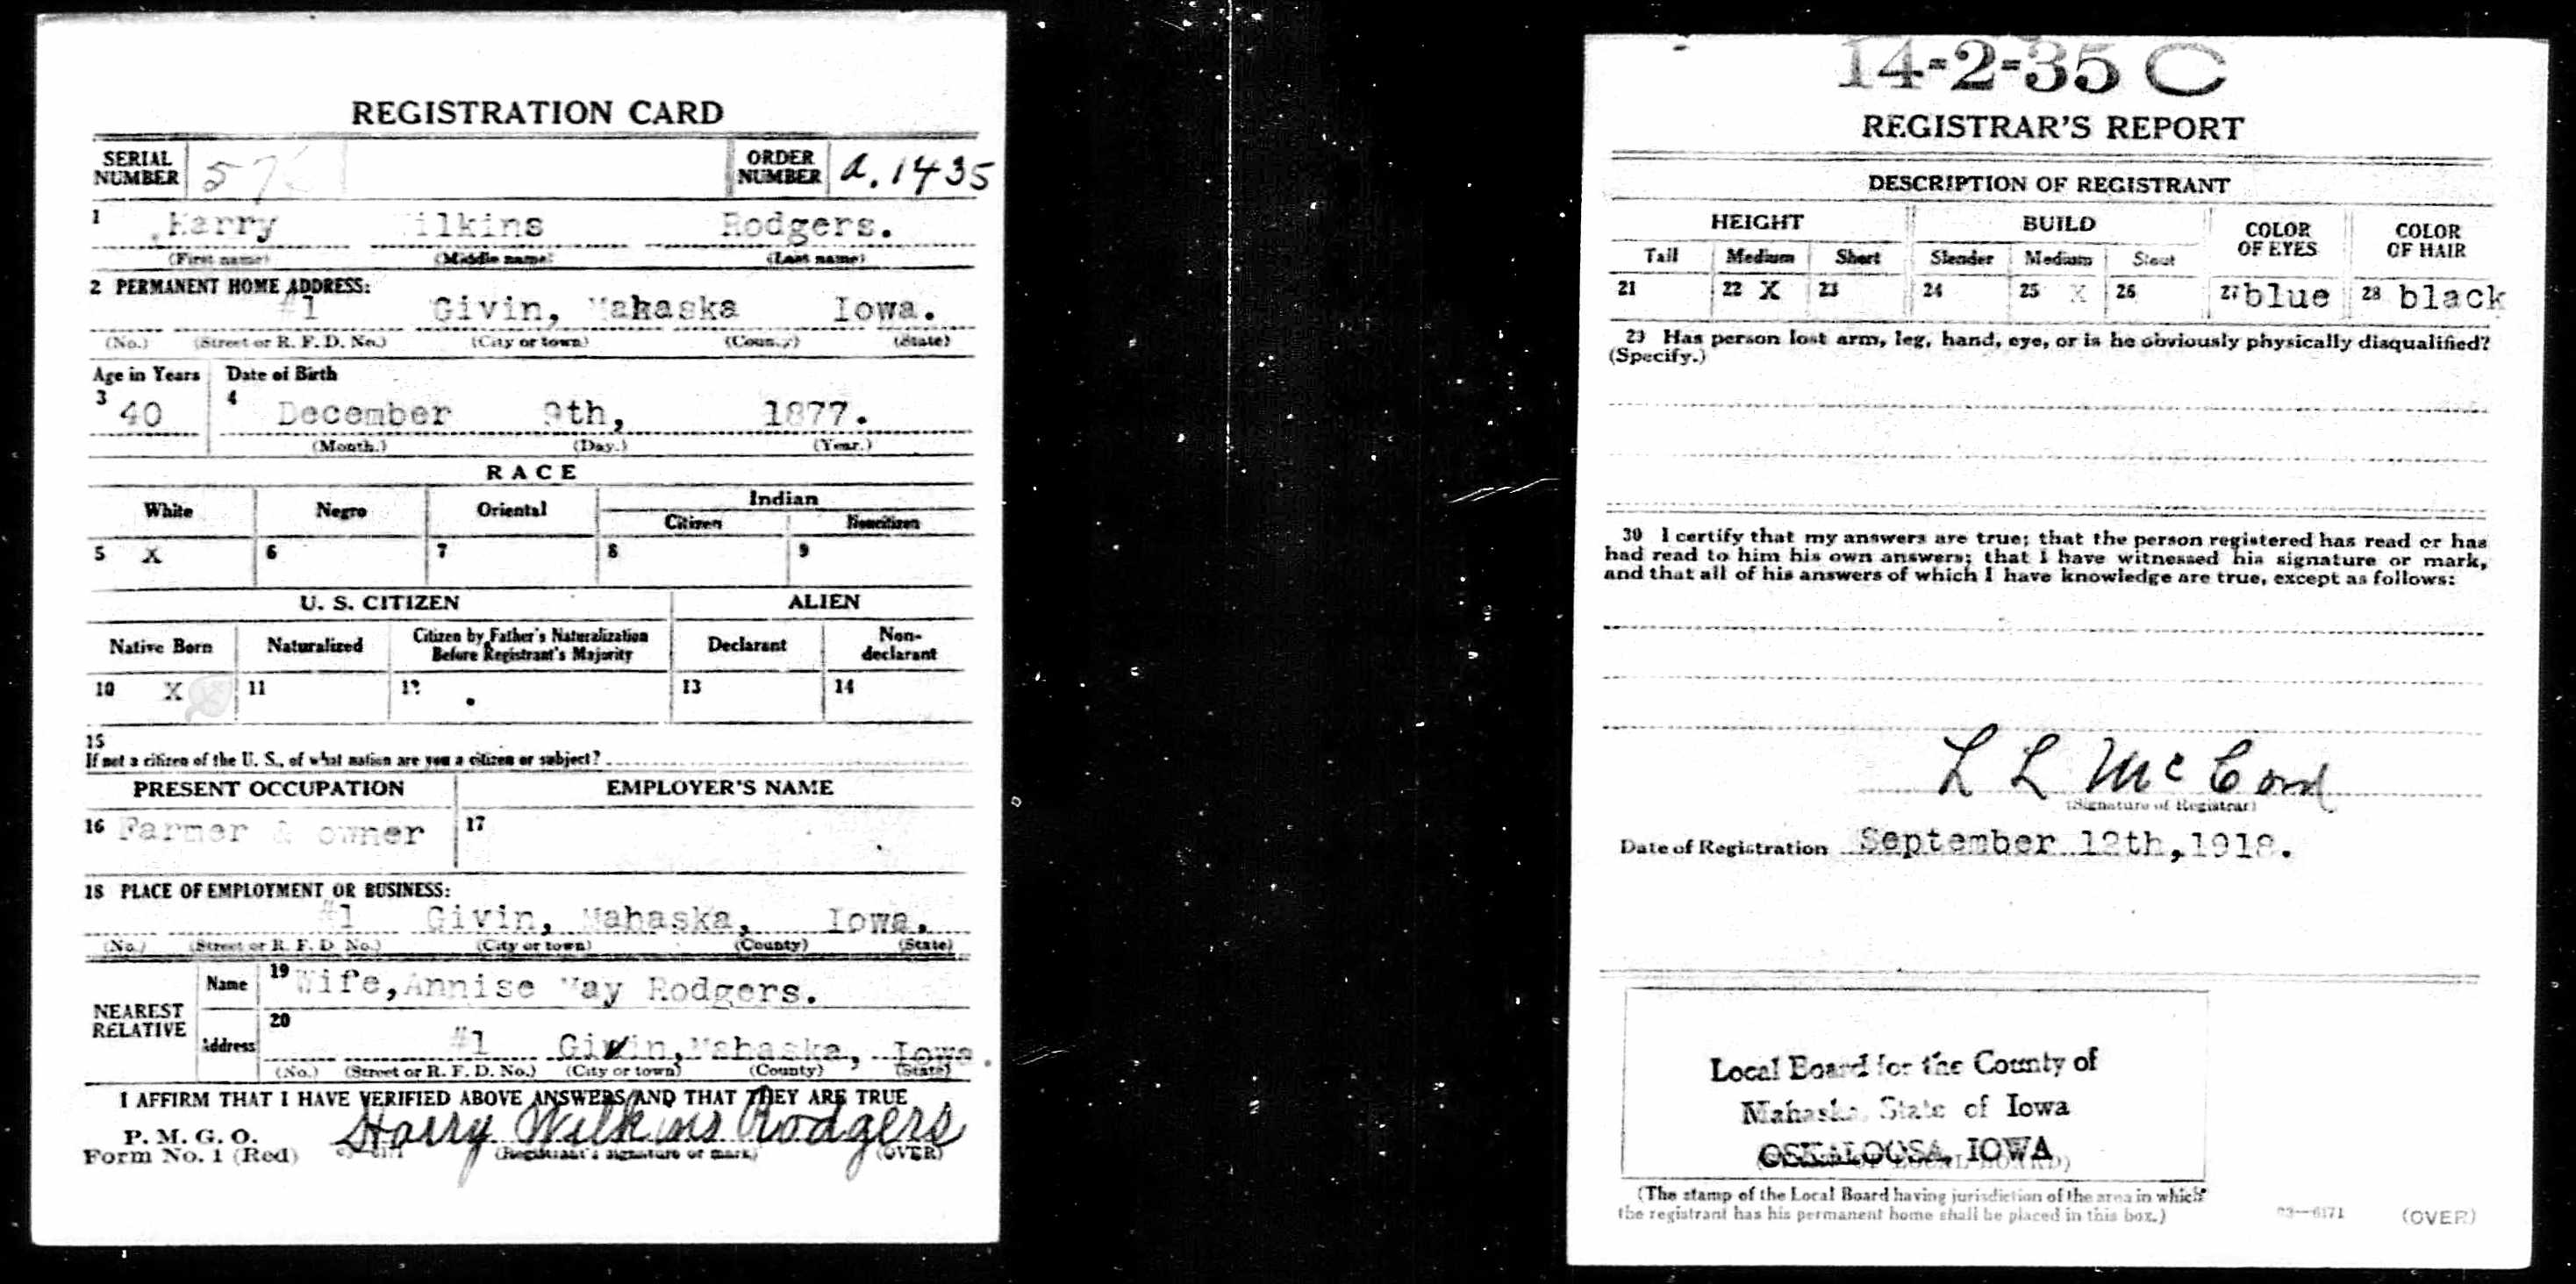 REGISTRATION CARD
SERIAL NUMBER 57
ORDER NUMBER a. 1435
1 Harry ilkins Rodgers.
(First name) (Middle name) (Last name)
2 PERMANENT HOME ADDRESS:
#1 Givin, Mahaska Iowa.
(No.) (Street or R. F. D. No.) (City or town) (County) (State)
Age in Years Date of Birth
3 40 4 December 9th, 1877.
(Month.) (Day.) (Year.)
RACE
White Negro Oriental Indian
Citizen Noncitizen
5 X 6 7 8 9
U. S. CITIZEN ALIEN
Native Born Naturalized Citizen by Father's Naturalization Before Registrant's Majority Declarant Non-declarant
10 X 11 12 13 14
15
If not a citizen of the U. S., of what nation are you a citizen or subject?
PRESENT OCCUPATION EMPLOYER'S NAME
16 Farmer & owner 17
18 PLACE OF EMPLOYMENT OR BUSINESS:
#1 Givin, Mahaska, Iowa.
(No.) (Street or R. F. D. No.) (City or town) (County) (State)
NEAREST RELATIVE
Name 19 Wife, Annise May Rodgers.
Address 20 #1 Givin, Mahaska, Iowa.
(No.) (Street or R. F. D. No.) (City or town) (County) (State)
I AFFIRM THAT I HAVE VERIFIED ABOVE ANSWERS AND THAT THEY ARE TRUE
P. M. G. O.
Form No. 1 (Red) Harry Wilkins Rodgers
(Registrant's signature or mark) (OVER)
14-2-35 C
REGISTRAR'S REPORT
DESCRIPTION OF REGISTRANT
HEIGHT BUILD COLOR OF EYES COLOR OF HAIR
Tall Medium Short Slender Medium Stout
21 22 X 23 24 25 X 26 27 blue 28 black
29 Has person lost arm, leg, hand, eye, or is he obviously physically disqualified?
(Specify.)
30 I certify that my answers are true; that the person registered has read or has
had read to him his own answers; that I have witnessed his signature or mark,
and that all of his answers of which I have knowledge are true, except as follows:
L L McCord
(Signature of Registrar)
Date of Registration September 12th, 1918.
Local Board for the County of
Mahaska, State of Iowa
OSKALOOSA, IOWA
(The stamp of the Local Board having jurisdiction of the area in which
the registrant has his permanent home shall be placed in this box.)
03—6171 (OVER)